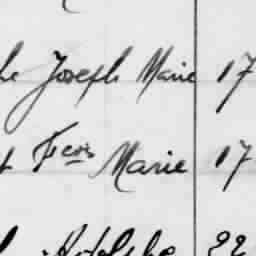 he Joseph Marie 17
t Fcois Marie 17
Adolphe 22